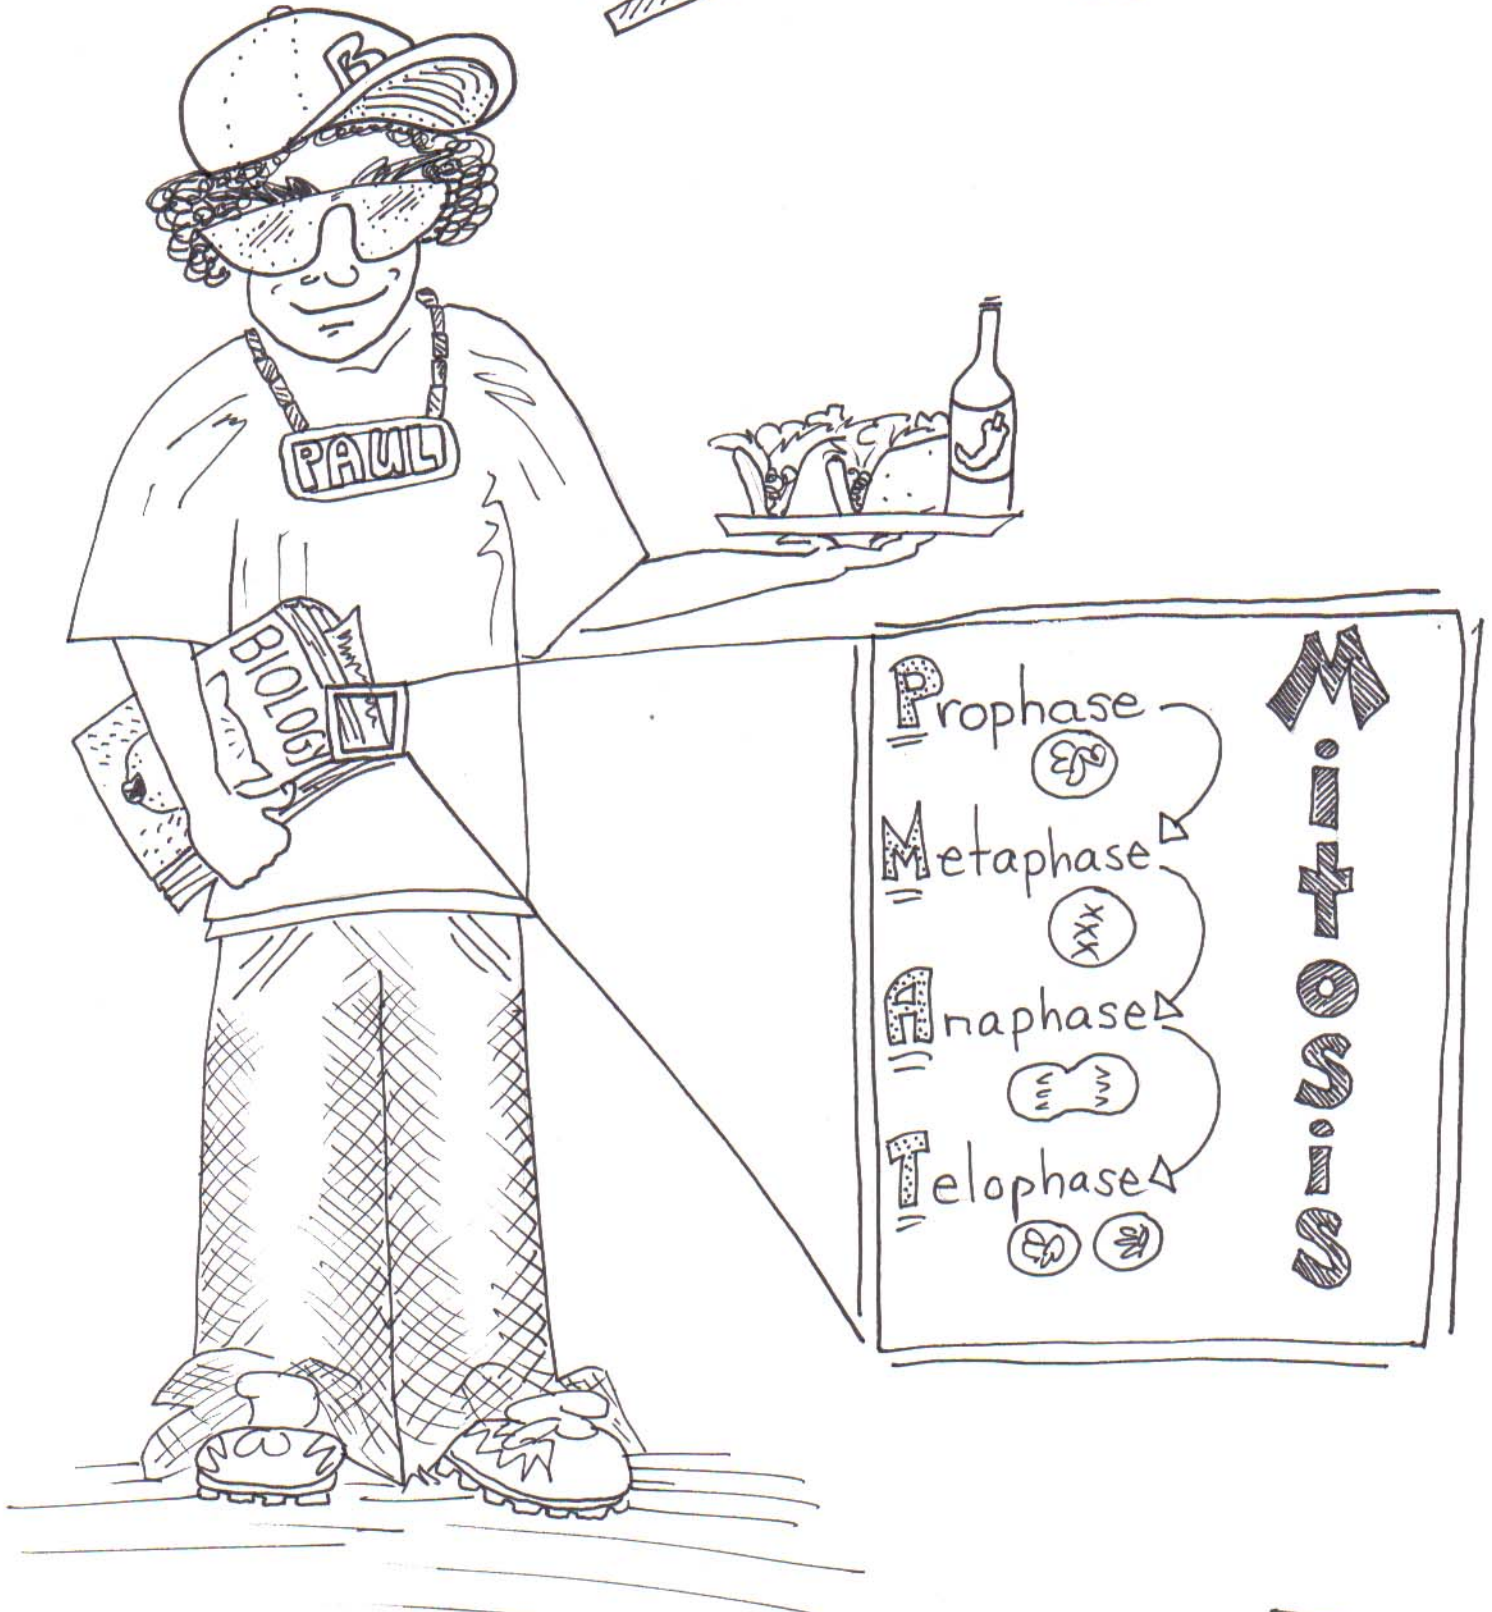 B
PAUL
BIOLOGY
Prophase
Metaphase
Anaphase
Telophase
Mitosis